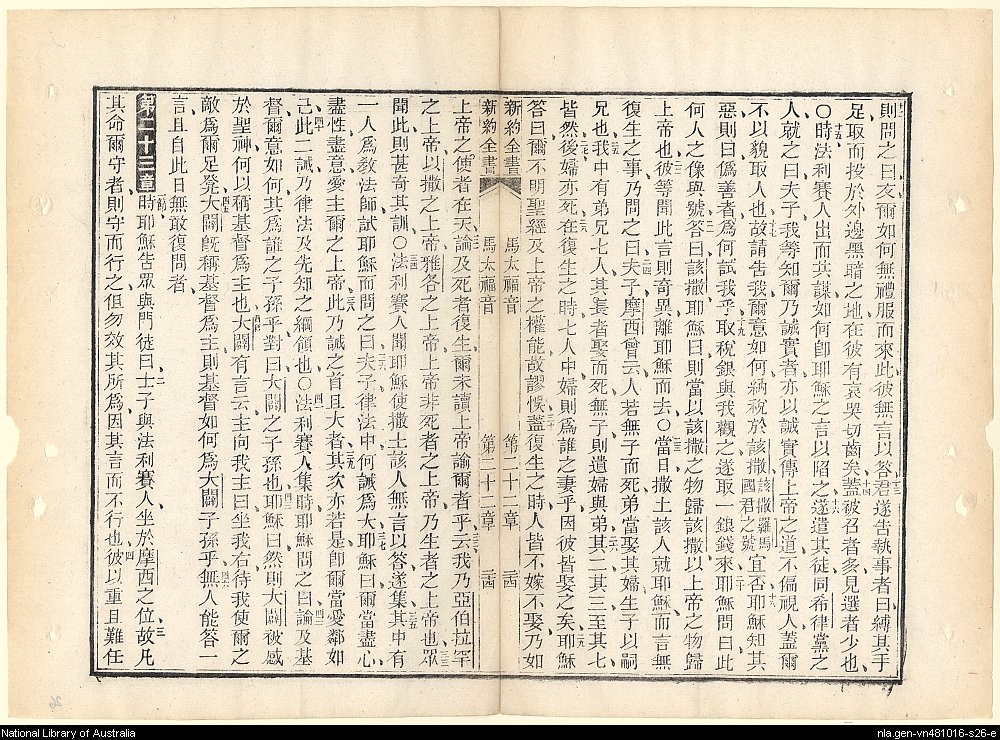 則問之曰友爾如何無禮服而來此彼無言以答君遂告執事者曰縛其手
足取而投於外邊黑暗之地在彼有哀哭切齒矣蓋被召者多見選者少也
○時法利賽人出而共謀如何卽耶穌之言以陷之遂遣其徒同希律黨之
人就之曰夫子我等知爾乃誠實者亦以誠實傳上帝之道不偏視人蓋爾
不以貌取人也故請告我爾意如何納稅於該撒該撒羅馬國君之號宜否耶穌知其
惡則曰僞善者爲何試我乎取稅銀與我觀之遂取一銀錢來耶穌問曰此
何人之像與號答曰該撒耶穌曰則當以該撒之物歸該撒以上帝之物歸
上帝也彼等聞此言則奇異離耶穌而去○當日撒土該人就耶穌而言無
復生之事乃問之曰夫子摩西曾云人若無子而死弟當娶其婦生子以嗣
兄也我中有弟兄七人其長者娶而死無子則遺婦與弟其二其三至其七
皆然後婦亦死在復生之時七人中婦則爲誰之妻乎因彼皆娶之矣耶穌
答曰爾不明聖經及上帝之權能故謬悞蓋復生之時人皆不嫁不娶乃如
新約全書 馬太福音 第二十二章 二十四
新約全書 馬太福音 第二十二章 二十四
上帝之使者在天論及死者復生爾未讀上帝諭爾者乎云我乃亞伯拉罕
之上帝以撒之上帝雅各之上帝上帝非死者之上帝乃生者之上帝也眾
聞此則甚奇其訓○法利賽人聞耶穌使撒土該人無言以答遂集其中有
一人爲教法師試耶穌而問之曰夫子律法中何誡爲大耶穌曰爾當盡心
盡性盡意愛主爾之上帝此乃誡之首且大者其次亦若是卽爾當愛鄰如
己此二誡乃律法及先知之綱領也○法利賽人集時耶穌問之曰論及基
督爾意如何其爲誰之子孫乎對曰大闢之子孫也耶穌曰然則大闢被感
於聖神何以稱基督爲主也大闢有言云主向我主曰坐我右待我使爾之
敵爲爾足凳大闢旣稱基督爲主則基督如何爲大闢子孫乎無人能答一
言且自此日無敢復問者
第二十三章 一節時耶穌告眾與門徒曰士子與法利賽人坐於摩西之位故凡
其命爾守者則守而行之但勿效其所爲因其言而不行也彼以重且難任
National Library of Australia
nla.gen-vn481016-s26-e